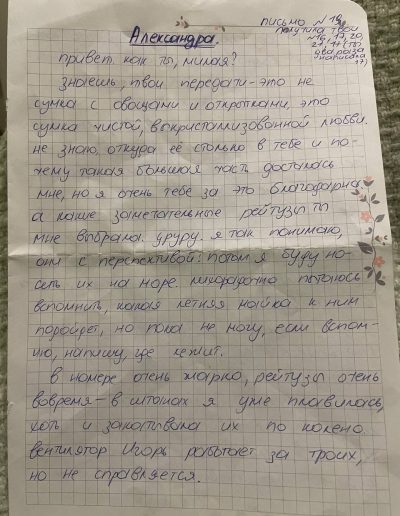 письмо № 19
Александра.
получила твои
№16, 17, 20,
21, 17 (ты
два раза
написала
17)
привет. как ты, милая?
знаешь, твои передачи – это не
сумка с овощами и открытками, это
сумка чистой, выкристаллизованной любви.
не знаю, откуда её столько в тебе и по-
чему такая большая часть досталась
мне, но я очень тебе за это благодарна.
а какие замечательные рейтузы ты
мне выбрала. друру. я так понимаю,
они с перспективой: потом я буду но-
сить их на море. лихорадочно пытаюсь
вспомнить, какая летняя майка к ним
подойдёт, но пока не могу, если вспом-
ню, напишу, где лежит.
в номере очень жарко, рейтузы очень
вовремя – в штанах я уже плавилась,
хоть и закатывала их по колено.
вентилятор Игорь работает за троих,
но не справляется.